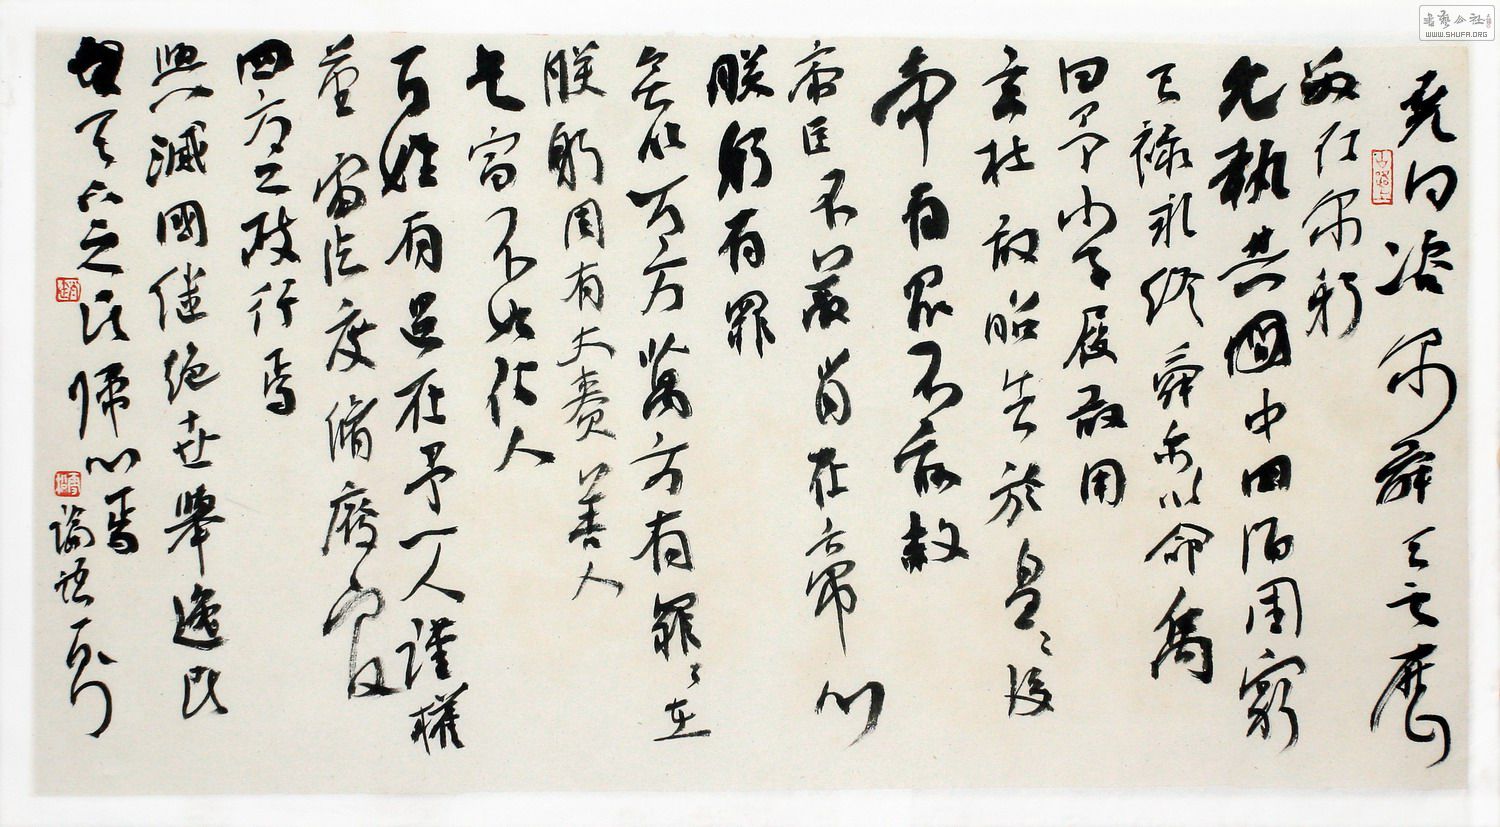 堯曰咨爾舜天之曆
數在爾躬
允執其中四海困窮
天祿永終舜亦以命禹
曰予小子履敢用
玄牡敢昭告於皇〻後
帝有罪不敢赦
帝臣不蔽簡在帝心
朕躬有罪
無以万方萬方有罪〻在
朕躬周有大賚善人
是富不如仁人
百姓有過在予一人謹權
量審法度脩廢官
四方之政行焉
興滅國繼絕世舉逸民
天下之民歸心焉
論語一則
書藝公社
WWW.SHUFA.ORG